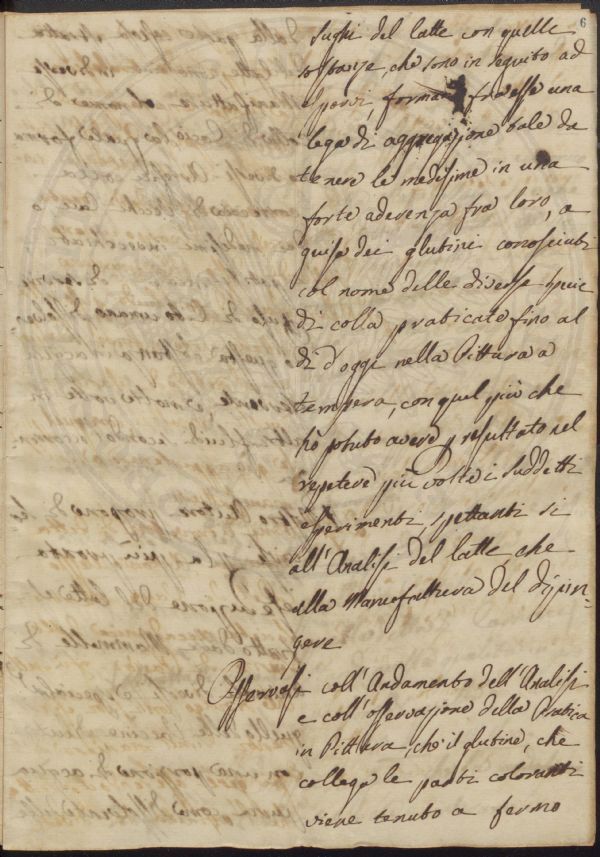 6
sughi del latte con quelle
sostanze, che sono in seguito ad
esporsi, formano fra esse una
lega di aggregazione tale da
tenere le medesime in una
forte aderenza fra loro, a
guisa dei glutini conosciuti
col nome delle diverse specie
di colla praticate fino al
dì d'oggi nella Pittura a
tempera, con quel più che
ho potuto avere p resultato nel
repetere più volte i suddetti
esperimenti spettanti si
all'Analisi del latte, che
alla Manufattura del dipin-
gere
Osservasi coll'Andamento dell'Analisi
e coll'osservazione della Pratica
in Pittura, ch'il glutine, che
collega le parti coloranti
viene tenuto a fermo